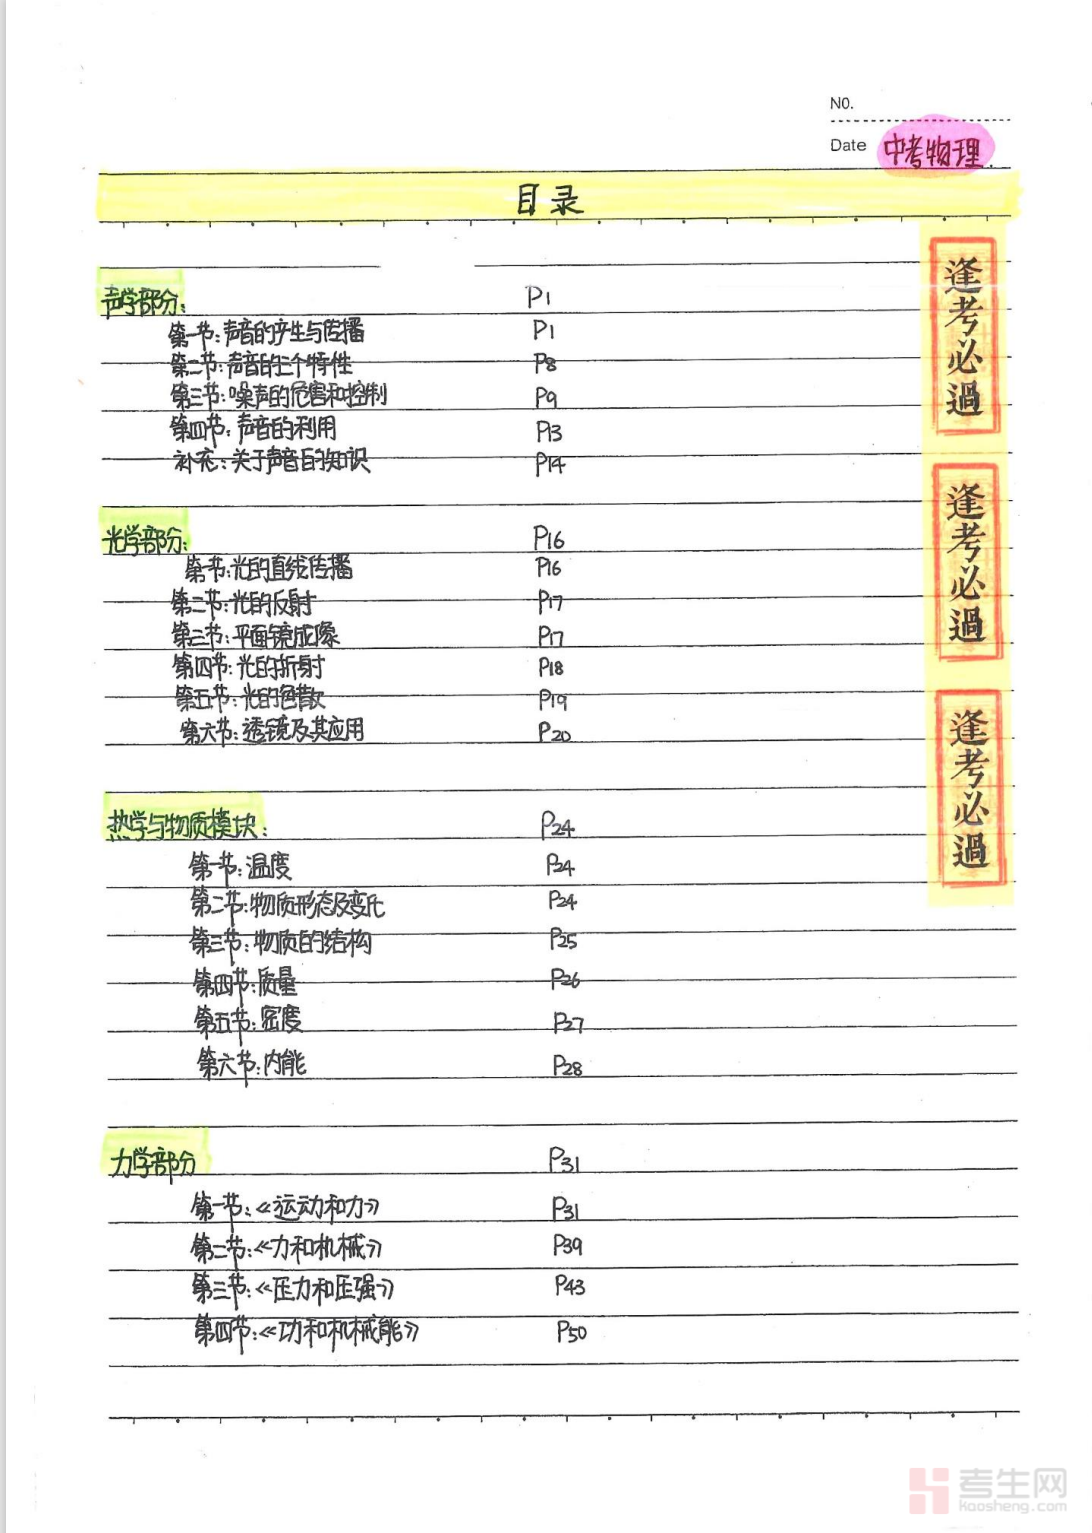 NO.
Date 中考物理
目录
声学部分: P1
第一节:声音的产生与传播 P1
第二节:声音的三个特性 P8
第三节:噪声的危害和控制 P9
第四节:声音的利用 P13
补充:关于声音的知识 P14
光学部分: P16
第一节:光的直线传播 P16
第二节:光的反射 P17
第三节:平面镜成像 P17
第四节:光的折射 P18
第五节:光的色散 P19
第六节:透镜及其应用 P20
热学与物质模块: P24
第一节:温度 P24
第二节:物质形态及变化 P24
第三节:物质的结构 P25
第四节:质量 P26
第五节:密度 P27
第六节:内能 P28
力学部分 P31
第一节:《运动和力》 P31
第二节:《力和机械》 P39
第三节:《压力和压强》 P43
第四节:《功和机械能》 P50
逢考必過
逢考必過
逢考必過
考生网
kaosheng.com